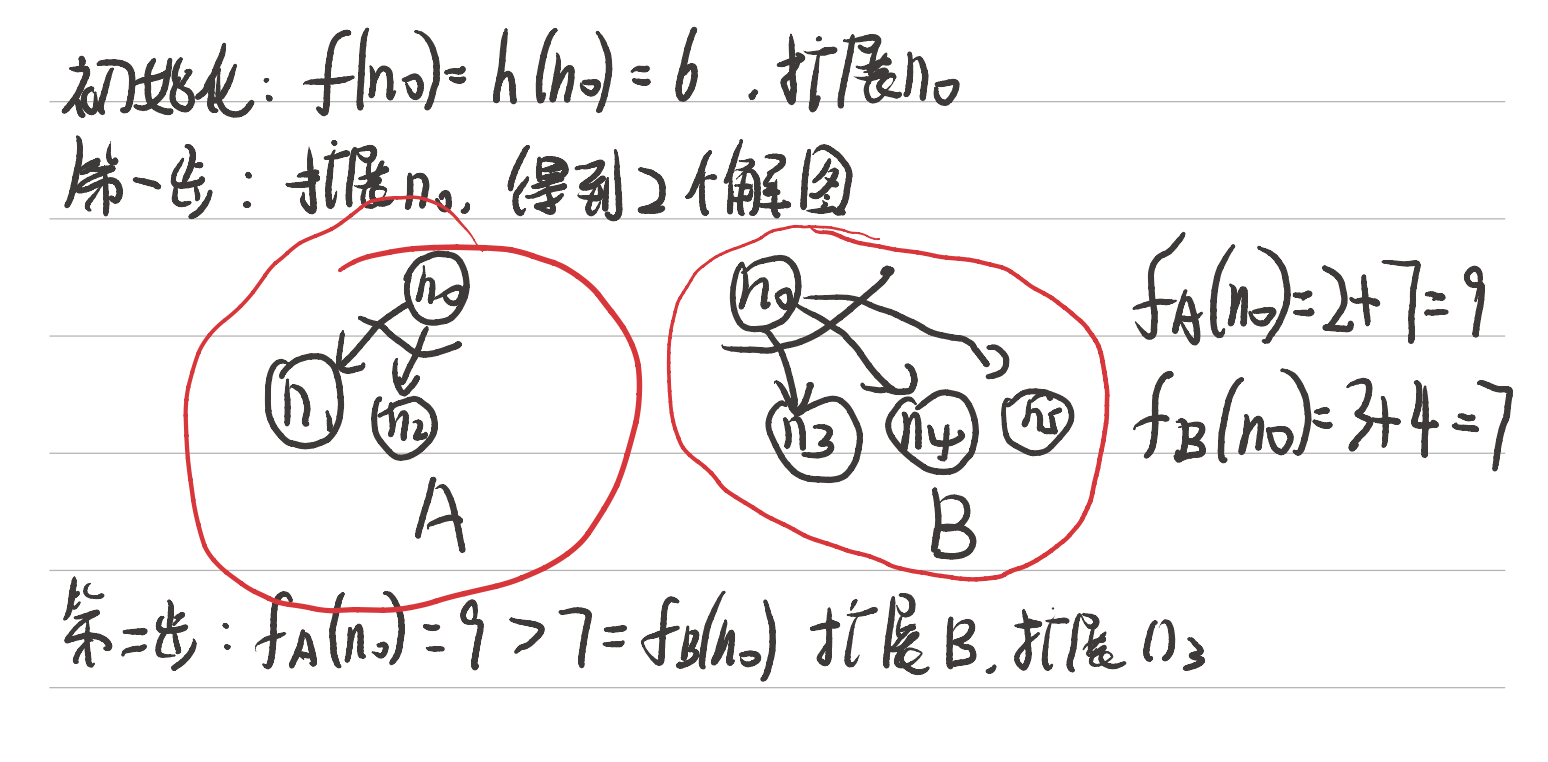 初始化: f(n0)= h(n0)= 6 . 扩展n0
第一步: 扩展n0, 得到2个解图
n0
n1 n2
A
n0
n3 n4 n5
B
fA(n0)=2+7=9
fB(n0)=3+4=7
第二步: fA(n0)=9>7=fB(n0) 扩展B, 扩展n3